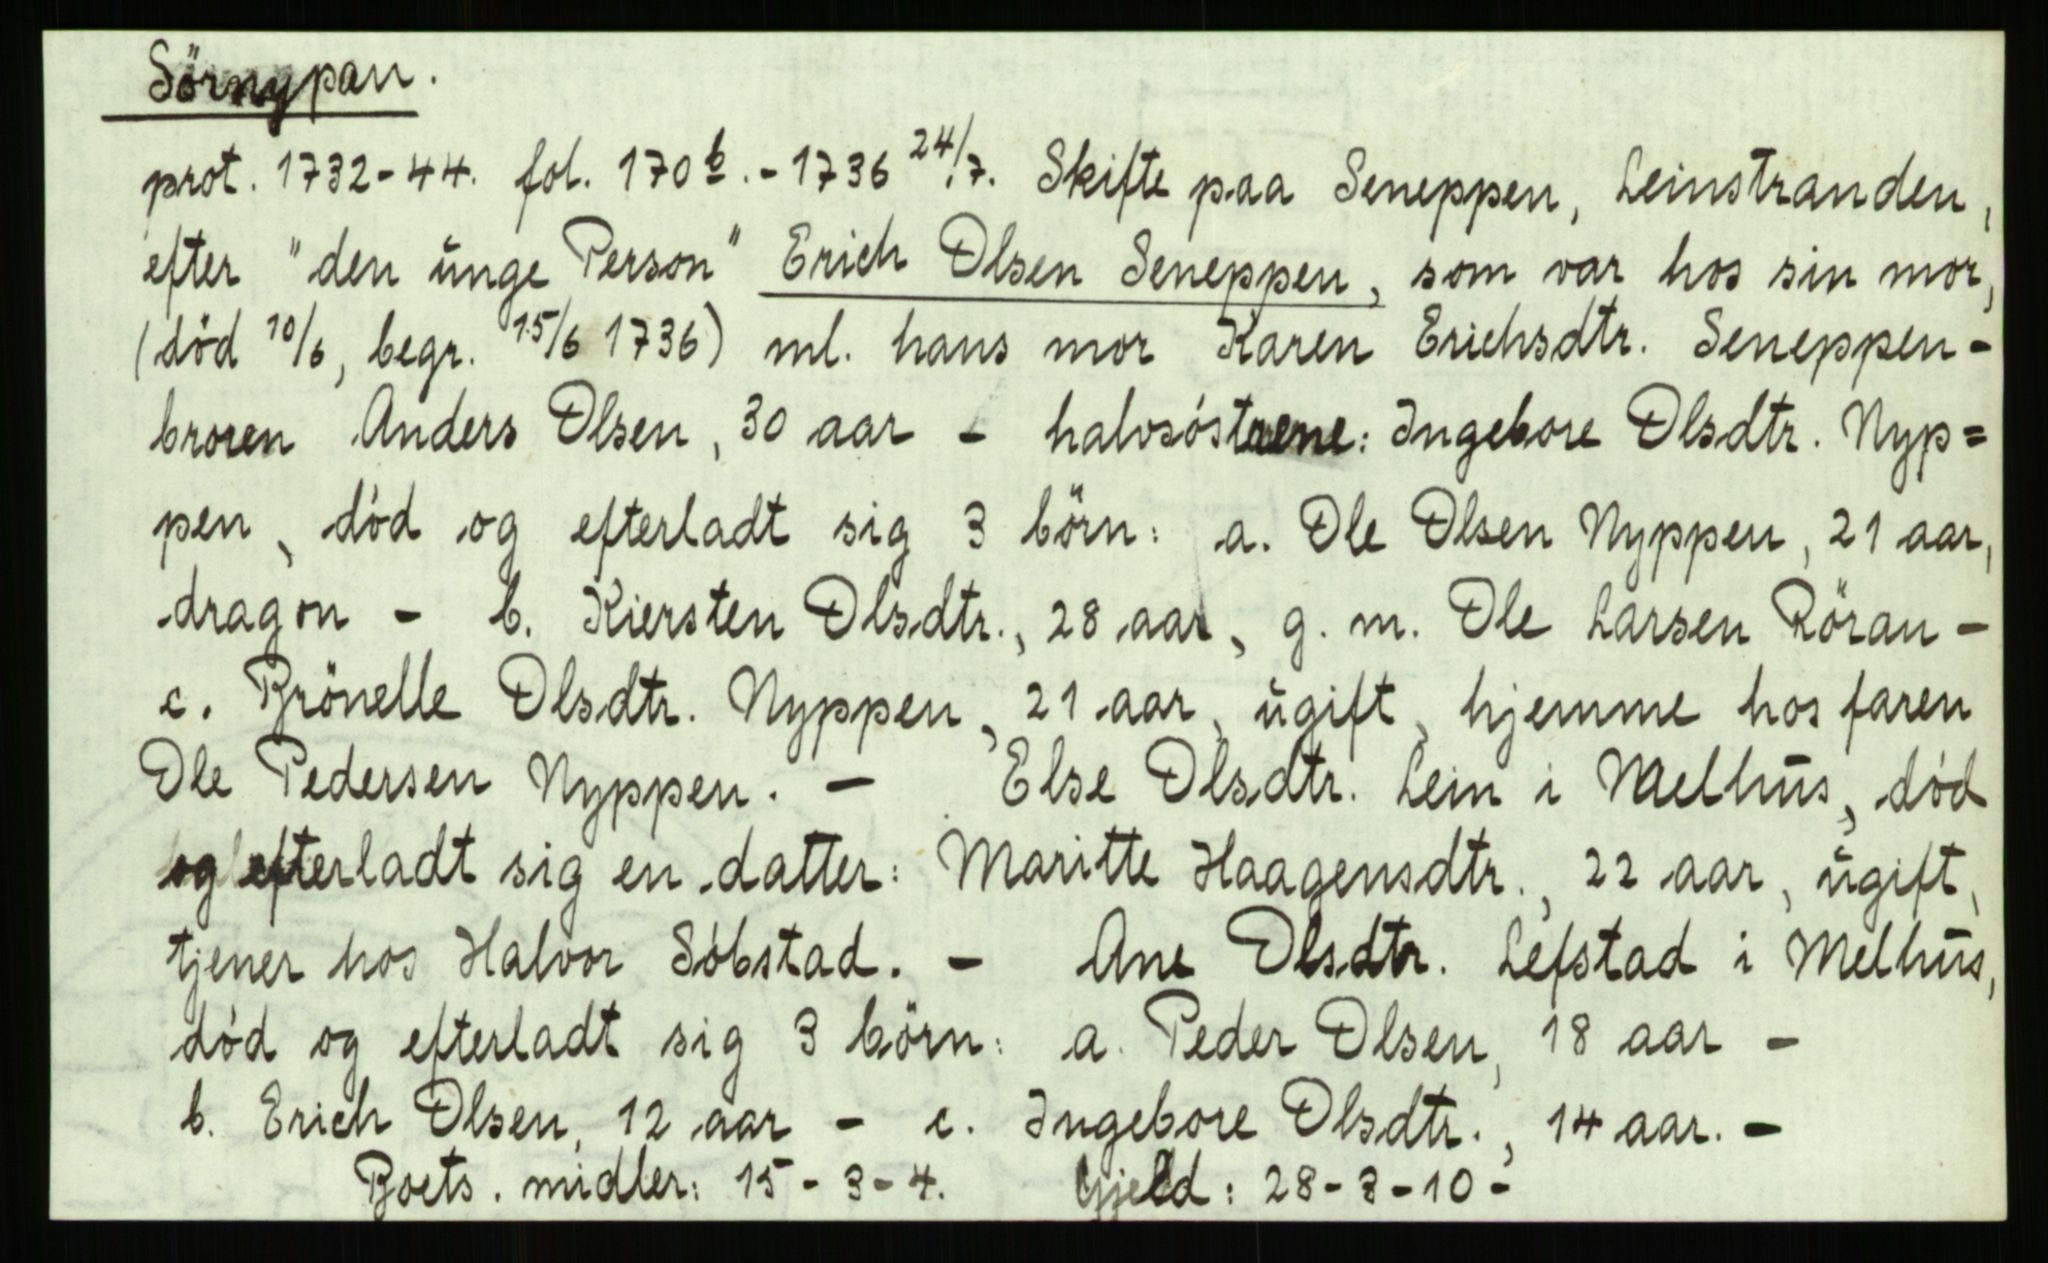 Sörnypan.
prot. 1732-44. fol. 170b. - 1736 24/7. Skifte paa Seneppen, Leinstranden,
efter "den ŭnge Person" Erich Olsen Seneppen, som var hos sin mor,
(död 10/6, begr. 15/6 1736) ml. hans mor Karen Erichsdtr. Seneppen -
broren Anders Olsen, 30 aar - halvsöstrene: Ingebore Olsdtr. Nyp=
pen, död og efterladt sig 3 börn: a. Ole Olsen Nyppen, 21 aar,
dragon - b. Kiersten Olsdtr., 28 aar, g. m. Ole Larsen Röran -
c. Brönelle Olsdtr. Nyppen, 21 aar, ŭgift, hjemme hos faren
Ole Pedersen Nyppen. - Else Olsdtr. Lein i Melhŭs, död
og efterladt sig en datter: Maritte Haagensdtr., 22 aar, ŭgift,
tjener hos Halvor Söbstad. - Ane Olsdtr. Lefstad i Melhŭs,
död og efterladt sig 3 börn: a. Peder Olsen, 18 aar -
b. Erich Olsen, 12 aar - c. Ingebore Olsdtr., 14 aar. -
Boets. midler: 15 - 3 - 4. Gjeld: 28 - 3 - 10 -